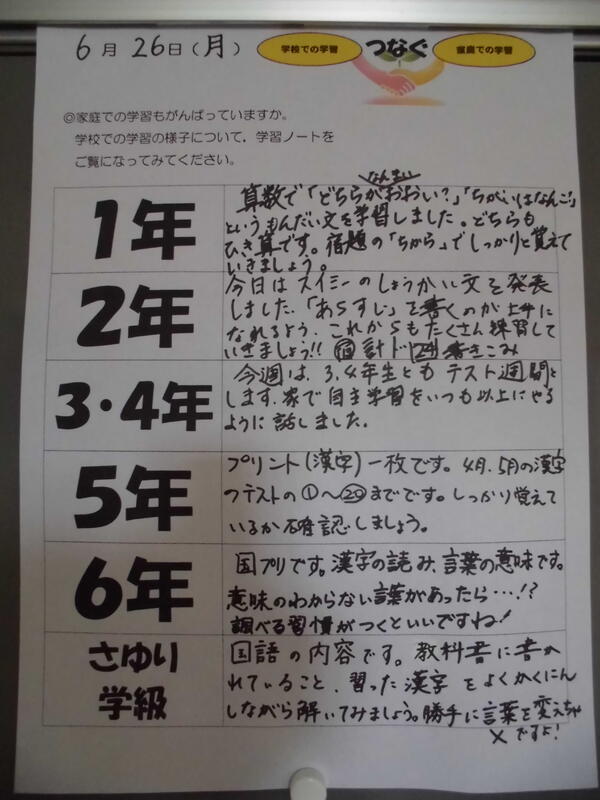 6月26日(月)
学校での学習 つなぐ 家庭での学習
◎家庭での学習もがんばっていますか。
学校での学習の様子について，学習ノートを
ご覧になってみてください。
1年
算数で「どちらがおおい？」「ちがいはなんこ？」
というもんだい文を学習しました。どちらも
ひき算です。宿題の「ちから」でしっかりと覚えて
いきましょう。
2年
今日はスイミーのしょうかい文を発表
しました。「あらすじ」を書くのが上手に
なれるよう、これからもたくさん練習して
いきましょう!! 宿 計ド 24 書きこみ
3・4年
今週は、3、4年生とも テスト週間と
します。家で自主学習をいつも以上にやる
ように話しました。
5年
プリント(漢字)一枚です。4月、5月の漢字
テストの①〜⑳までです。しっかり覚えて
いるか確認しましょう。
6年
国プリです。漢字の読み、言葉の意味です。
意味のわからない言葉があったら…!?
調べる習慣がつくといいですね!
さゆり
学級
国語の内容です。教科書に書か
れていること、習った漢字をよくかくにん
しながら解いてみましょう。勝手に言葉を変えちゃ
×ですよ!